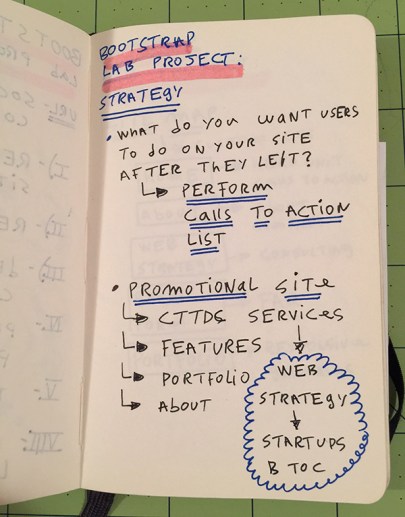 BOOTSTRAP
LAB PROJECT:
STRATEGY
• WHAT DO YOU WANT USERS
TO DO ON YOUR SITE
AFTER THEY LEIT?
PERFORM
CALLS TO ACTION
LIST
• PROMOTIONAL SITE
CTTDS SERVICES
FEATURES
PORTFOLIO
ABOUT
WEB
STRATEGY
STARTUPS
B TO C